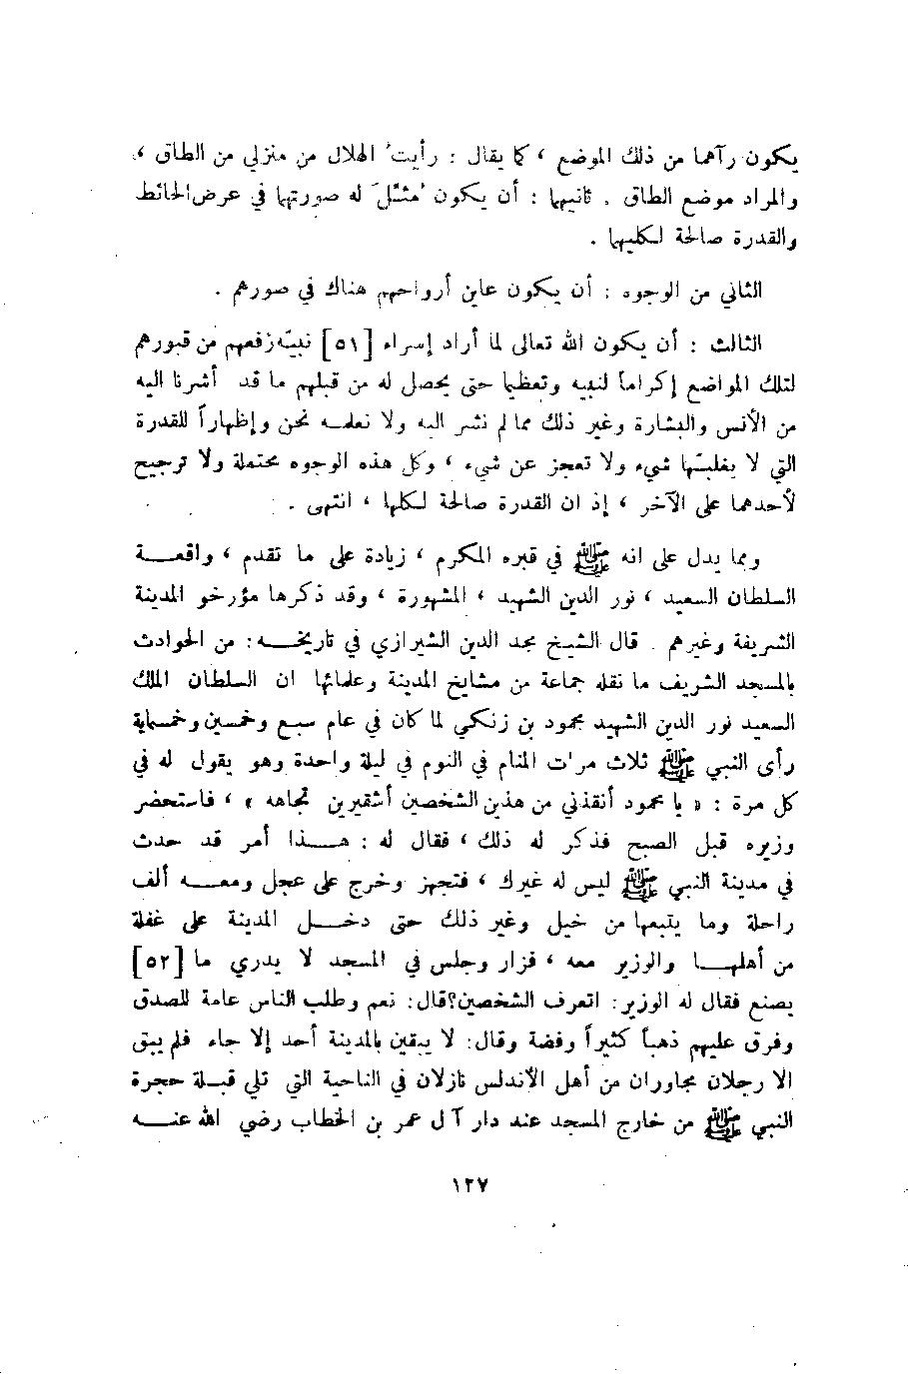 يكون رآهما من ذلك الموضع ، كما يقال : رأيتُ الهلال من منزلي من الطاق ،
والمراد موضع الطاق . ثانيهما : أن يكون مُثّلَ له صورتهما في عرض الحائط
والقدرة صالحة لكليهما .
الثاني من الوجوه : أن يكون عاين أرواحهم هناك في صورهم .
الثالث : أن يكون الله تعالى لما أراد إسراء [٥١] نبيّه رفعهم من قبورهم
لتلك المواضع إكراماً لنبيه وتعظيما حتى يحصل له من قبلهم ما قد أشرنا اليه
من الأنس والبشارة وغير ذلك مما لم نشر اليه ولا نعلمه نحن وإظهاراً للقدرة
التي لا يغلبها شيء ولا تعجز عن شيء ، وكل هذه الوجوه محتملة ولا ترجيح
لأحدهما على الآخر ، إذ ان القدرة صالحة لكلها ، انتهى .
ومما يدل على انه ﷺ في قبره المكرم ، زيادة على ما تقدم ، واقعة
السلطان السعيد ، نور الدين الشهيد ، المشهورة ، وقد ذكرها مؤرخو المدينة
الشريفة وغيرهم . قال الشيخ مجد الدين الشيرازي في تاريخه : من الحوادث
بالمسجد الشريف ما نقله جماعة من مشايخ المدينة وعلمائها ان السلطان الملك
السعيد نور الدين الشهيد محمود بن زنكي لما كان في عام سبع وخمسين وخمسماية
رأى النبي ﷺ ثلاث مرات المنام في النوم في ليلة واحدة وهو يقول له في
كل مرة : « يا محمود أنقذني من هذين الشخصين أشقيرين تجاهه » ، فاستحضر
وزيره قبل الصبح فذكر له ذلك ، فقال له : هذا أمر قد حدث
في مدينة النبي ﷺ ليس له غيرك ، فتجهز وخرج على عجل ومعه ألف
راحلة وما يتبعها من خيل وغير ذلك حتى دخل المدينة على غفلة
من أهلها والوزير معه ، فزار وجلس في المسجد لا يدري ما [٥٢]
يصنع فقال له الوزير : اتعرف الشخصين؟ قال : نعم وطلب الناس عامة للصدق
وفرق عليهم ذهباً كثيراً وفضة وقال : لا يبقين بالمدينة أحد إلا جاء فلم يبق
الا رجلان مجاوران من أهل الأندلس نازلان في الناحية التي تلي قبلة حجرة
النبي ﷺ من خارج المسجد عند دار آل عمر بن الخطاب رضي الله عنه
١٢٧